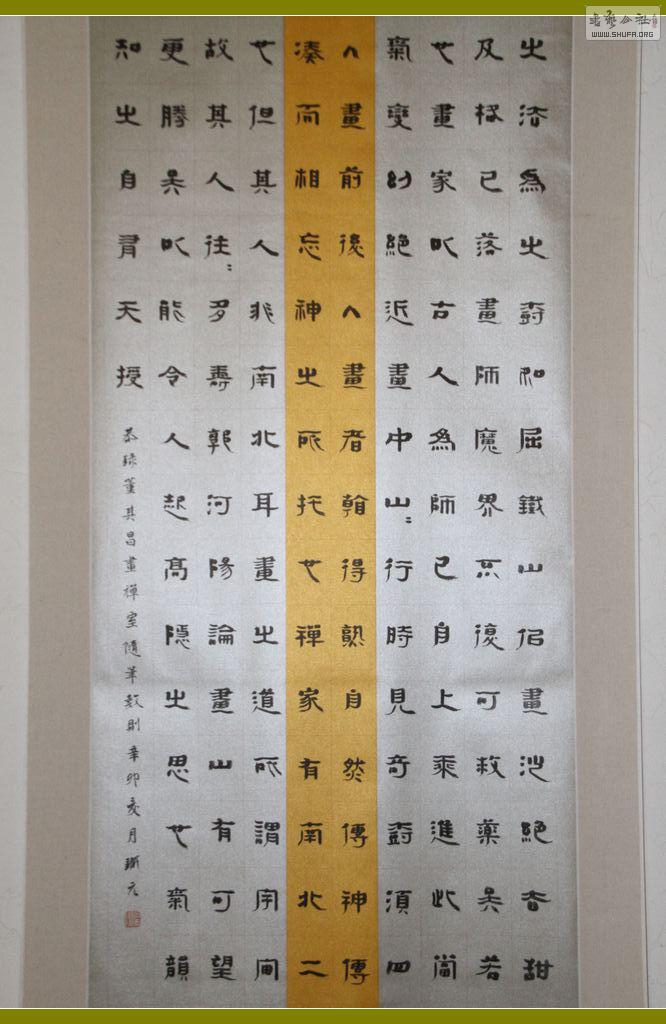 之法為之樹如屈鐵山佀畫沙絕去甜
及格已落畫師魔界不復可救藥矣若
也畫家以古人為師已自上乘進此當
氣變幻絕近畫中山〻行時見奇樹須四
入畫前後入畫者看得熟自然傳神傳
湊而相忘神之所托也禪家有南北二
也但其人非南北耳畫之道所謂宇宙
故其人往〻多壽郭河陽論畫山有可望
更勝矣以能令人起高隱之思也氣韻
知之自有天授
恭錄董其昌畫禪室隨筆數則辛卯夏月
書藝公社
WWW.SHUFA.ORG